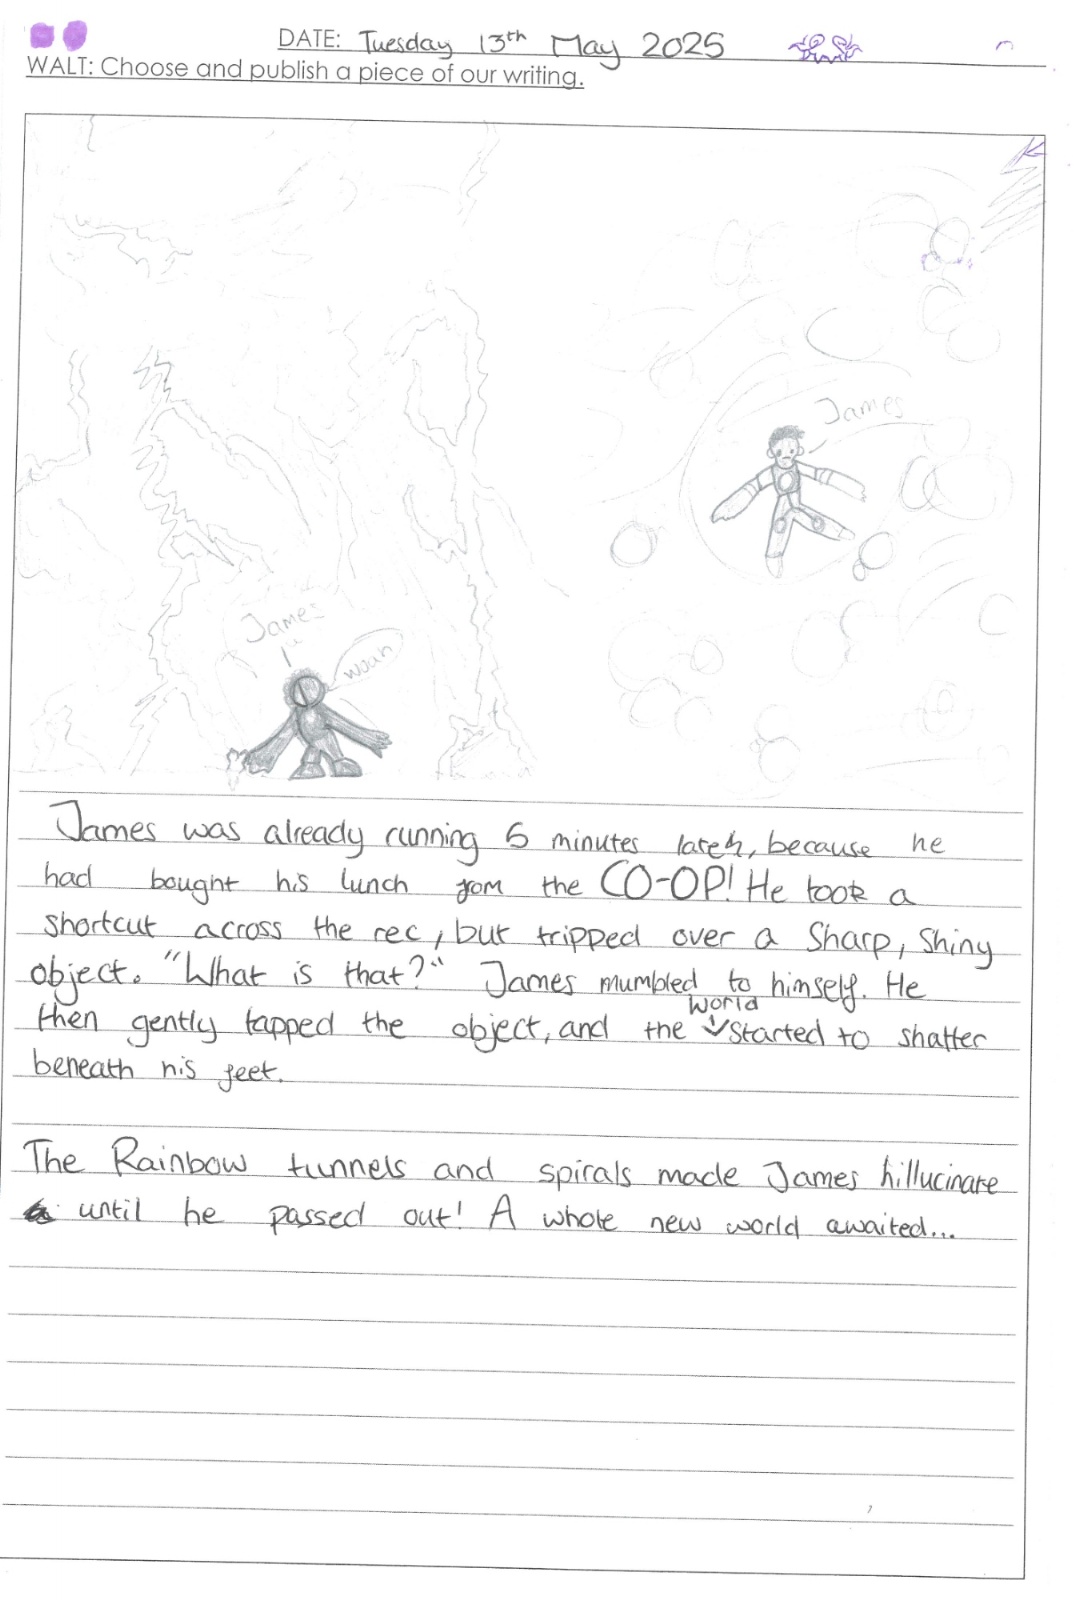 DATE: Tuesday 13th May 2025
WALT: Choose and publish a piece of our writing.
James
James
woah
James was already running 5 minutes late, because he
had bought his lunch fom the CO-OP! He took a
shortcut across the rec, but tripped over a Sharp, Shiny
object. "What is that?" James mumbled to himself. He
world
then gently tapped the object, and the started to shatter
beneath his feet.
The Rainbow tunnels and spirals made James hillucinate
until he passed out! A whole new world awaited...